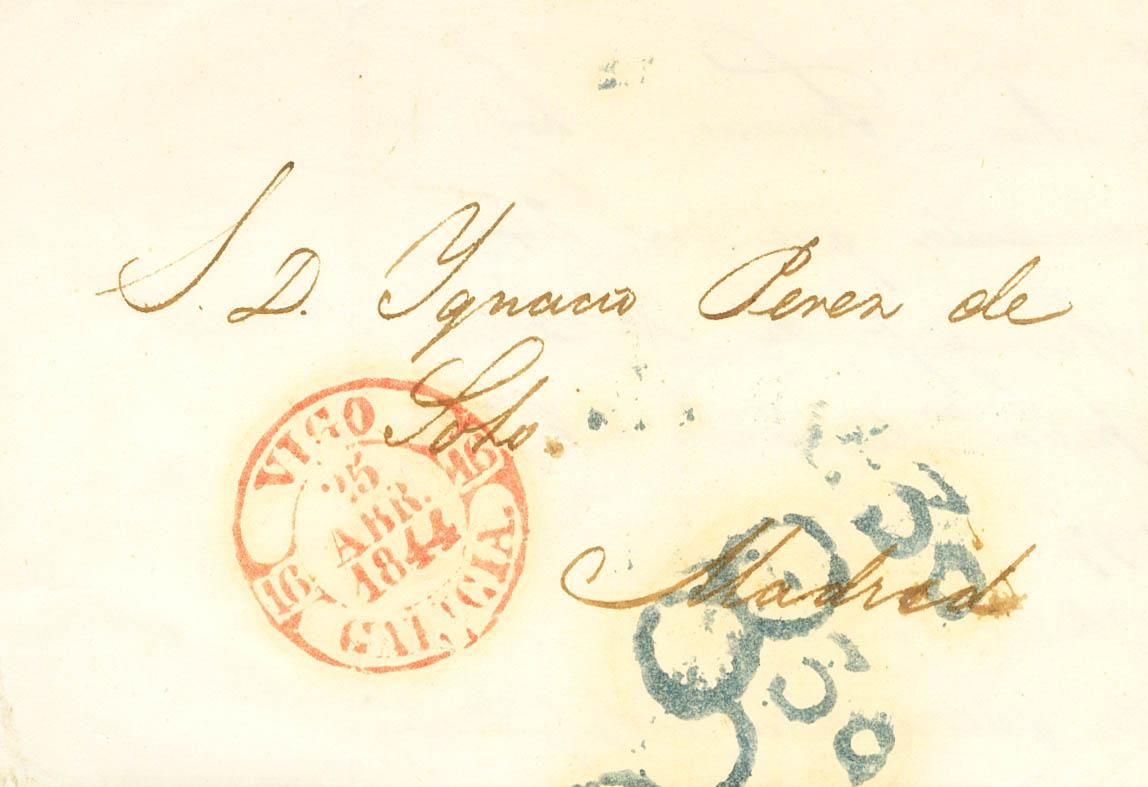 S. D. Ygnacio Perez de
Soto.
Madrid
VIGO
16
25
ABR.
1844
16
GALICIA.